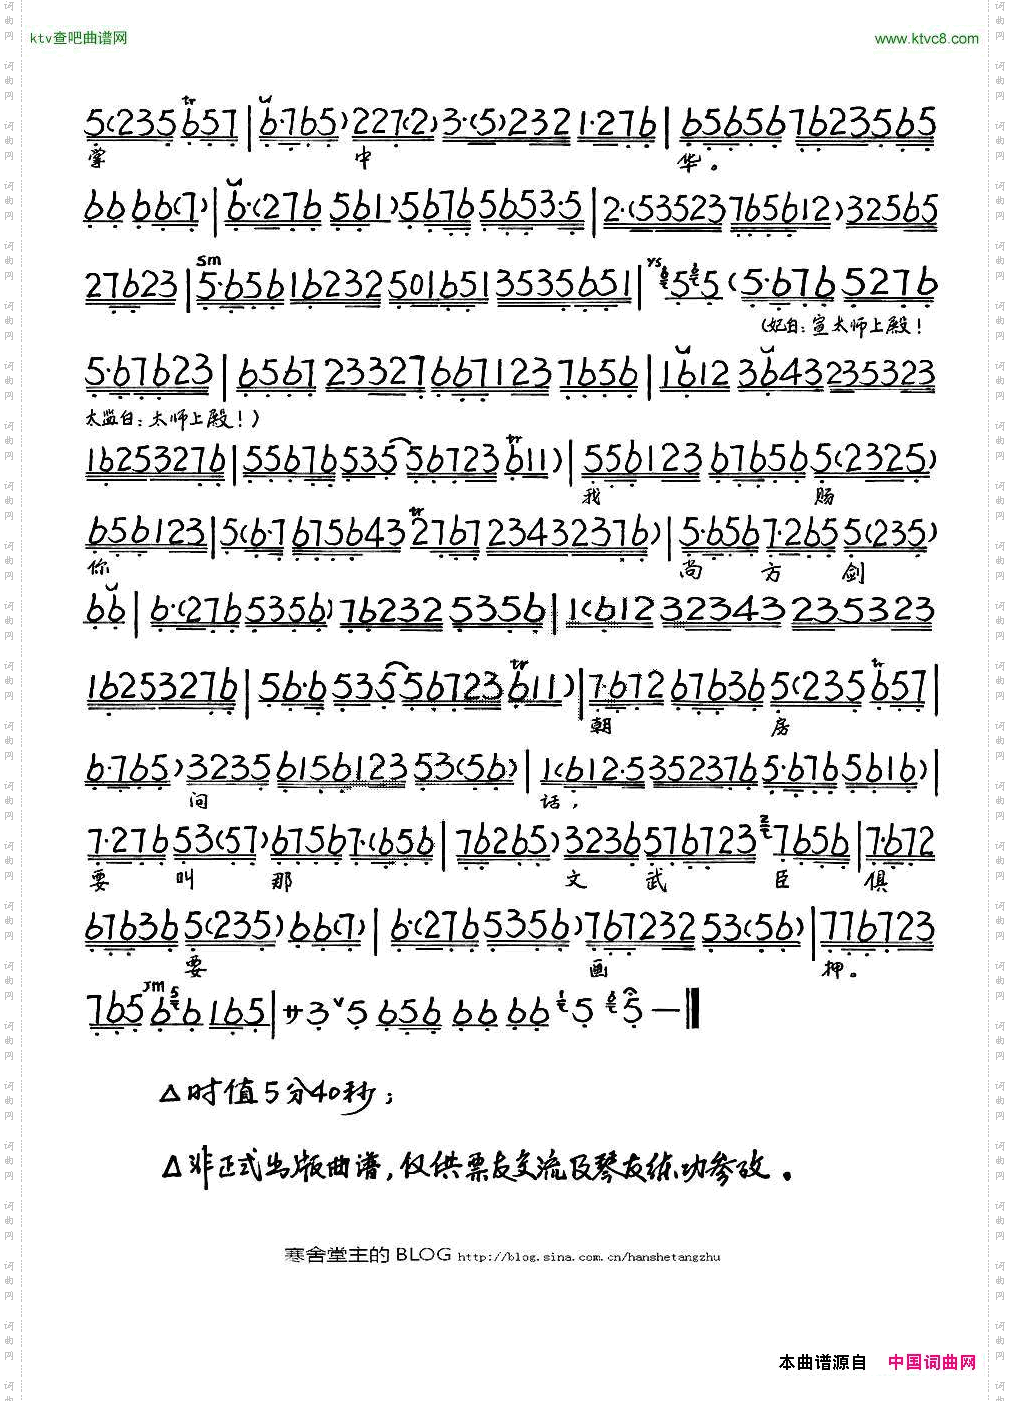 ktv查吧曲谱网 www.ktvc8.com
5(235 657 | 6·765) 227(2) 3·(5)232 1·276 | 65656 7623565
掌 中 华。
66 66(7) | 6·(276 561) 5676 5653·5 | 2·(53523 765612) 32565
27623 | 5·656 16232 501651 3535651 | 5 5 (5·676 5276
(妃白:宣太师上殿!
5·67623 | 6567 23327 667123 7656 | 1612 3643 235323
太监白:太师上殿!)
16253276 | 55676 535 56723 611) | 556123 67656 5(2325)
我 赐
656123 | 5(6·7 675643 2767 23432376) | 5·656 7·265 5(235)
你 尚 方 剑
66 | 6·(276 5356) 76232 5356 | 1(612 32343 235323
16253276 | 56·6 535 56723 611) | 7·672 67636 5(235 657 |
朝 房
6·765) 3235 6156123 53(56) | 1(612·5 3523765·676 5616) |
问 话,
7·276 53(57) 67567·(656 | 76265) 3236 576723 7656 | 7·672
要 叫 那 文 武 臣 俱
67636 5(235) 66(7) | 6·(276 5356) 767232 53(56) | 776723
要 画 押。
765 6 6 165 | サ 3 5 656 66 66 5 5 —
△时值5分40秒;
△非正式出版曲谱,仅供票友交流及琴友练功参改。
寒舍堂主的 BLOG http://blog.sina.com.cn/hanshetangzhu
本曲谱源自 中国词曲网